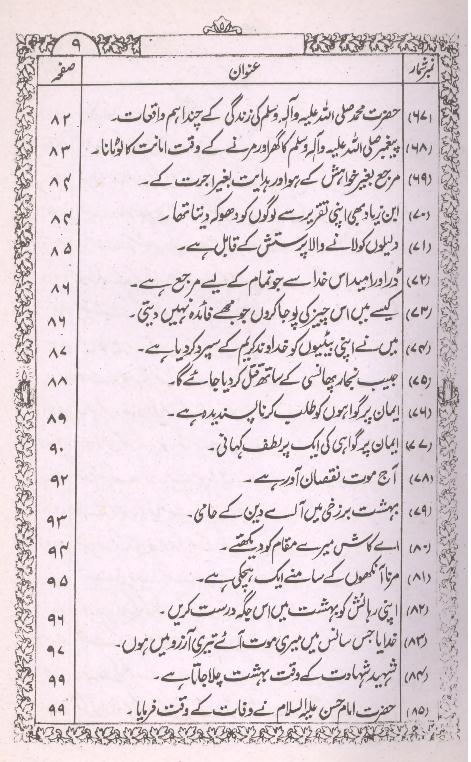 ۹
نمبر شمار عنوان صفحہ
(۶۷) حضرت محمد صلی اللہ علیہ وآلہ وسلم کی زندگی کے چند اہم واقعات۔ ۸۲
(۶۸) پیغمبر صلی اللہ علیہ وآلہ وسلم کا گھر اور مرنے کے وقت امانت کا لوٹانا۔ ۸۳
(۶۹) مرجع بغیر خواہش کے ہو اور ہدایت بغیر اجرت کے۔ ۸۴
(۷۰) ابن زیاد بھی اپنی تقریر سے لوگوں کو دھوکہ دیتا تھا۔ ۸۴
(۷۱) دلیلوں کو لانے والا پرستش کے قابل ہے۔ ۸۵
(۷۲) ڈر اور امید اس خدا سے جو تمام کے لیے مرجع ہے۔ ۸۶
(۷۳) کیسے میں اس چیز کی پوجا کروں جو مجھے فائدہ نہیں دیتی۔ ۸۶
(۷۴) میں نے اپنی بیٹیوں کو خداوند کریم کے سپرد کر دیا ہے۔ ۸۷
(۷۵) حبیب نجار پھانسی کے ساتھ قتل کر دیا جائے گا۔ ۸۸
(۷۶) ایمان پر گواہوں کو طلب کرنا پسندیدہ ہے۔ ۸۹
(۷۷) ایمان پر گواہی کی ایک پر لطف کہانی۔ ۹۰
(۷۸) آج موت نقصان آور ہے۔ ۹۲
(۷۹) بہشت برزخی میں آلے دین کے حامی۔ ۹۳
(۸۰) اے کاش میرے مقام کو دیکھتے۔ ۹۴
(۸۱) مرنا آنکھوں کے سامنے ایک ہچکی ہے۔ ۹۵
(۸۲) اپنی رہائش کو بہشت میں اس جگہ درست کریں۔ ۹۶
(۸۳) خدایا جس سانس میں میری موت آئے تیری آرزو میں ہوں۔ ۹۷
(۸۴) شہید شہادت کے وقت بہشت چلا جاتا ہے۔ ۹۹
(۸۵) حضرت امام حسن علیہ السلام نے وفات کے وقت فرمایا۔ ۹۹